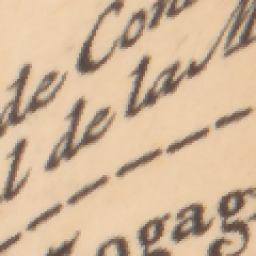 de Con
l de la M
ogag